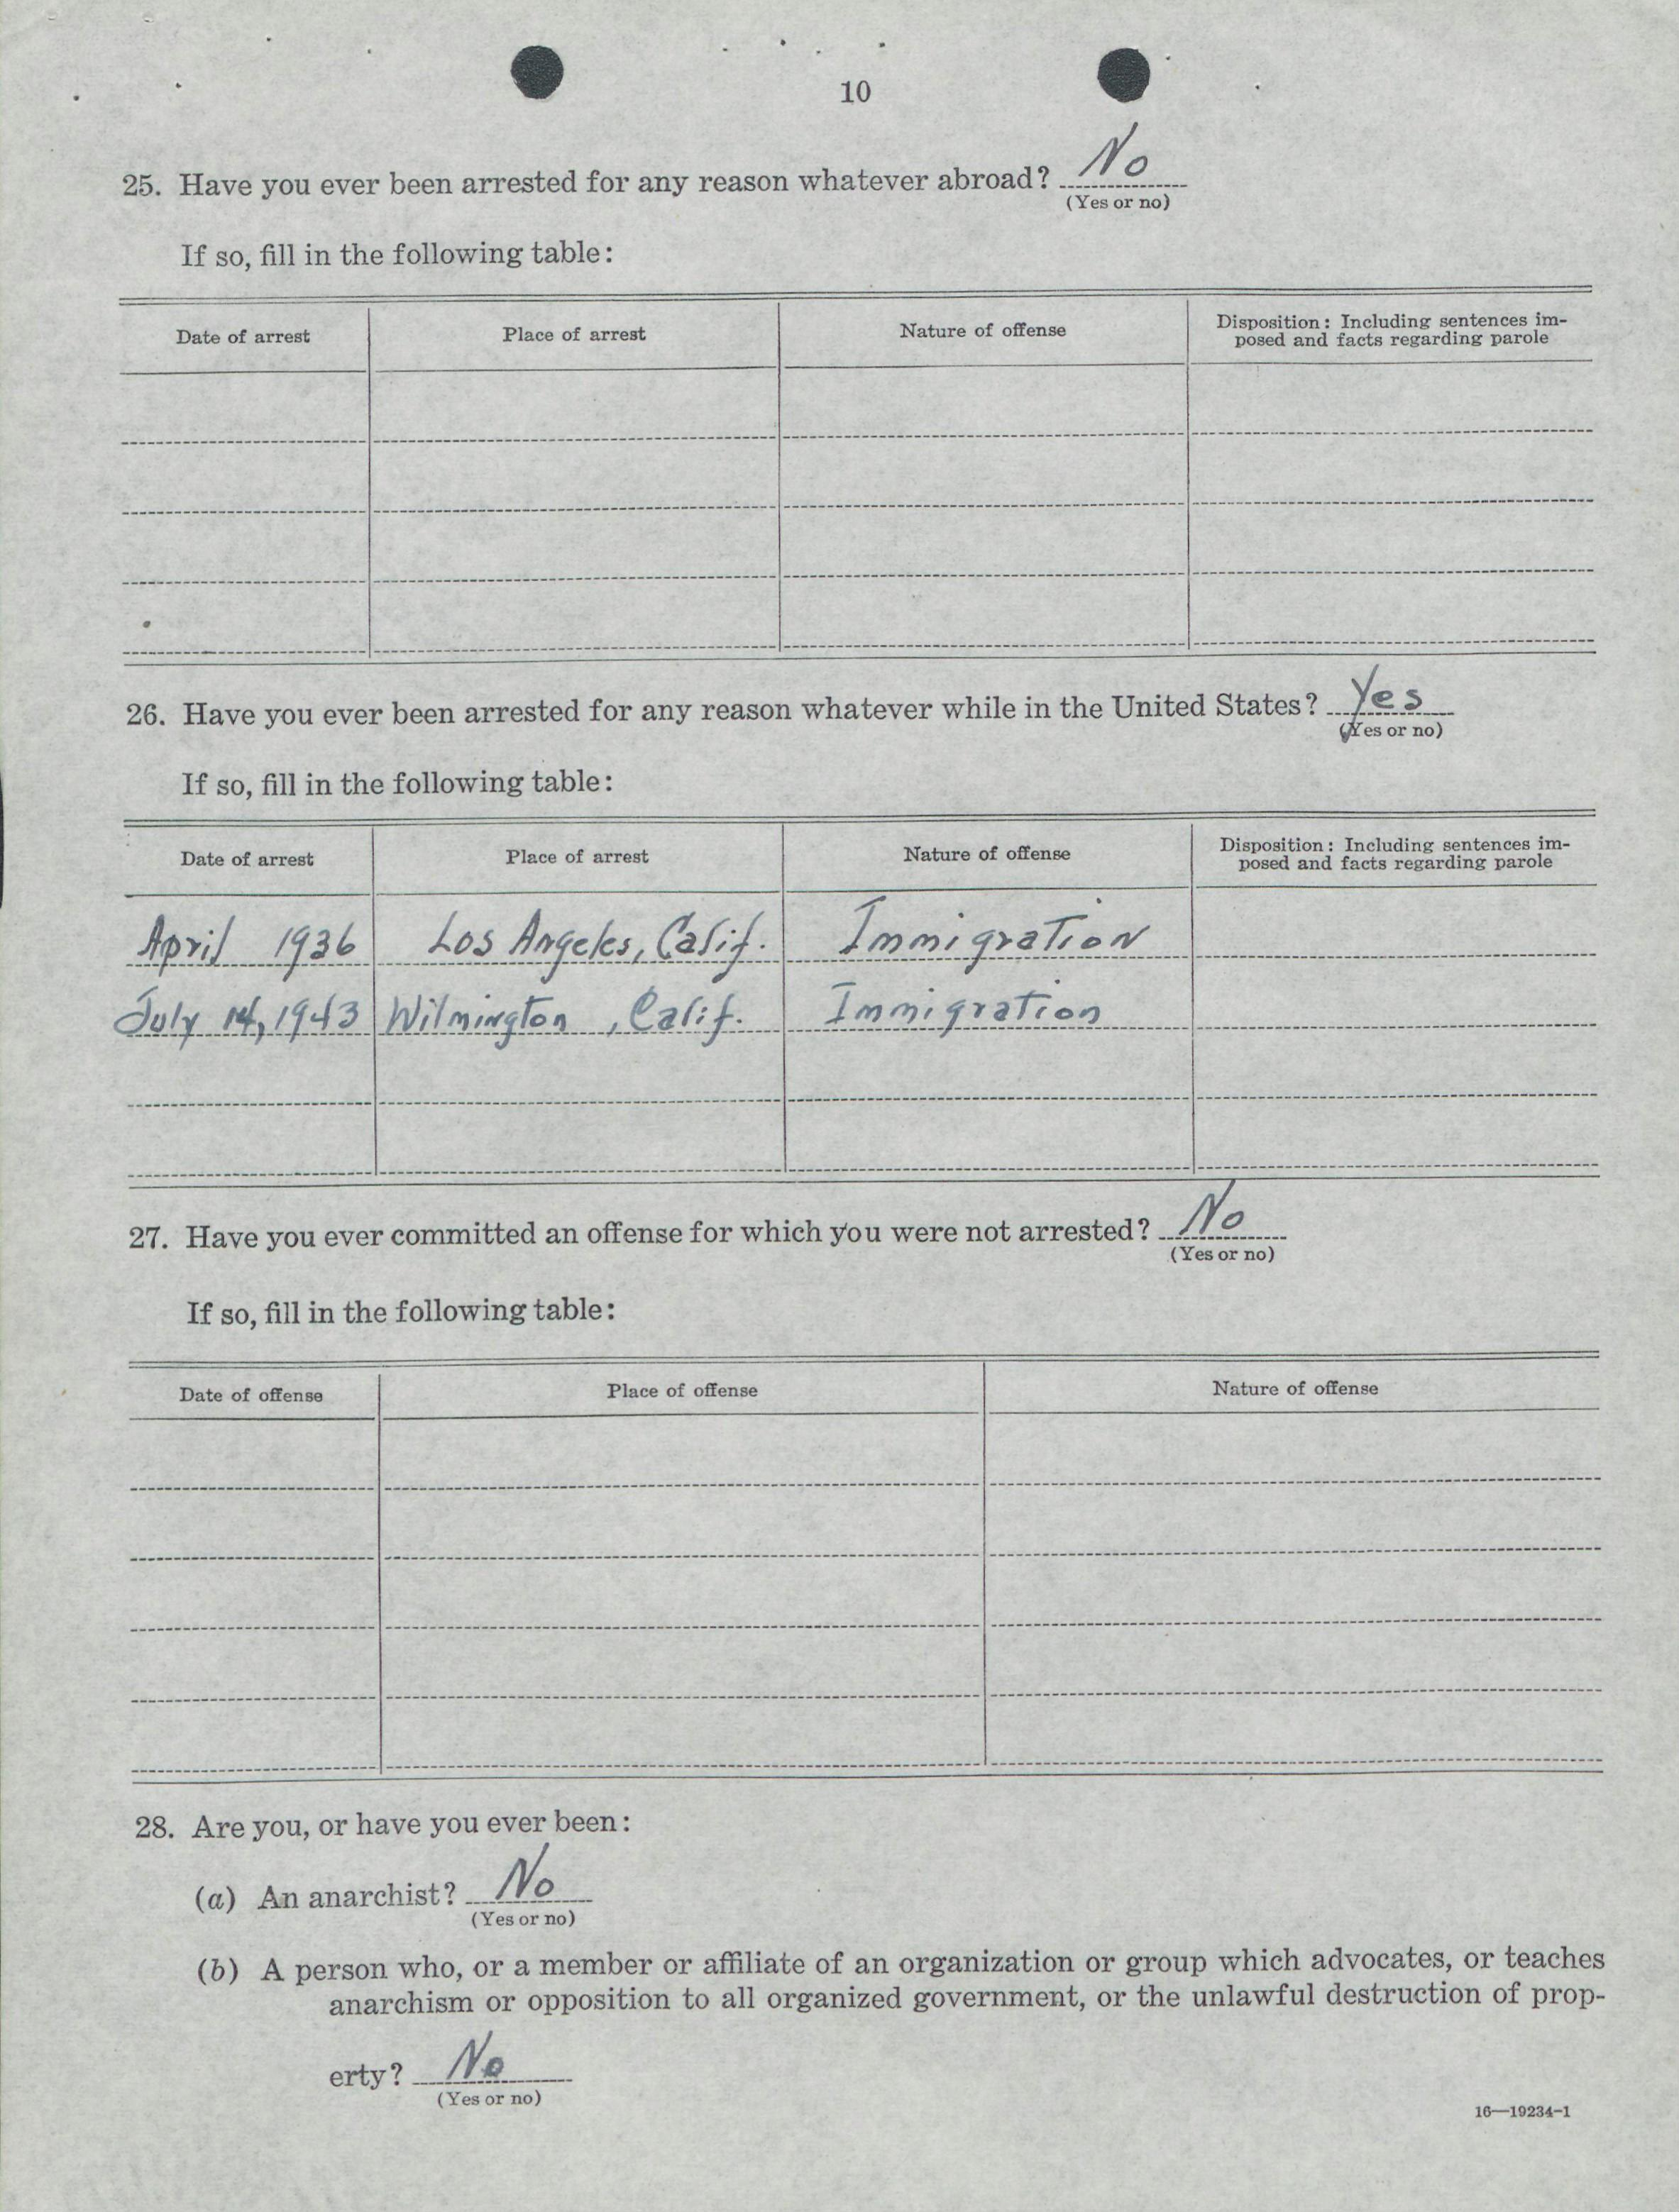 10
25. Have you ever been arrested for any reason whatever abroad? No
(Yes or no)
If so, fill in the following table:
Date of arrest Place of arrest Nature of offense Disposition: Including sentences im-
posed and facts regarding parole
26. Have you ever been arrested for any reason whatever while in the United States? Yes
(Yes or no)
If so, fill in the following table:
Date of arrest Place of arrest Nature of offense Disposition: Including sentences im-
posed and facts regarding parole
April 1936 Los Angeles, Calif. Immigration
July 14, 1943 Wilmington, Calif. Immigration
27. Have you ever committed an offense for which you were not arrested? No
(Yes or no)
If so, fill in the following table:
Date of offense Place of offense Nature of offense
28. Are you, or have you ever been:
(a) An anarchist? No
(Yes or no)
(b) A person who, or a member or affiliate of an organization or group which advocates, or teaches
anarchism or opposition to all organized government, or the unlawful destruction of prop-
erty? No
(Yes or no)
16—19234-1